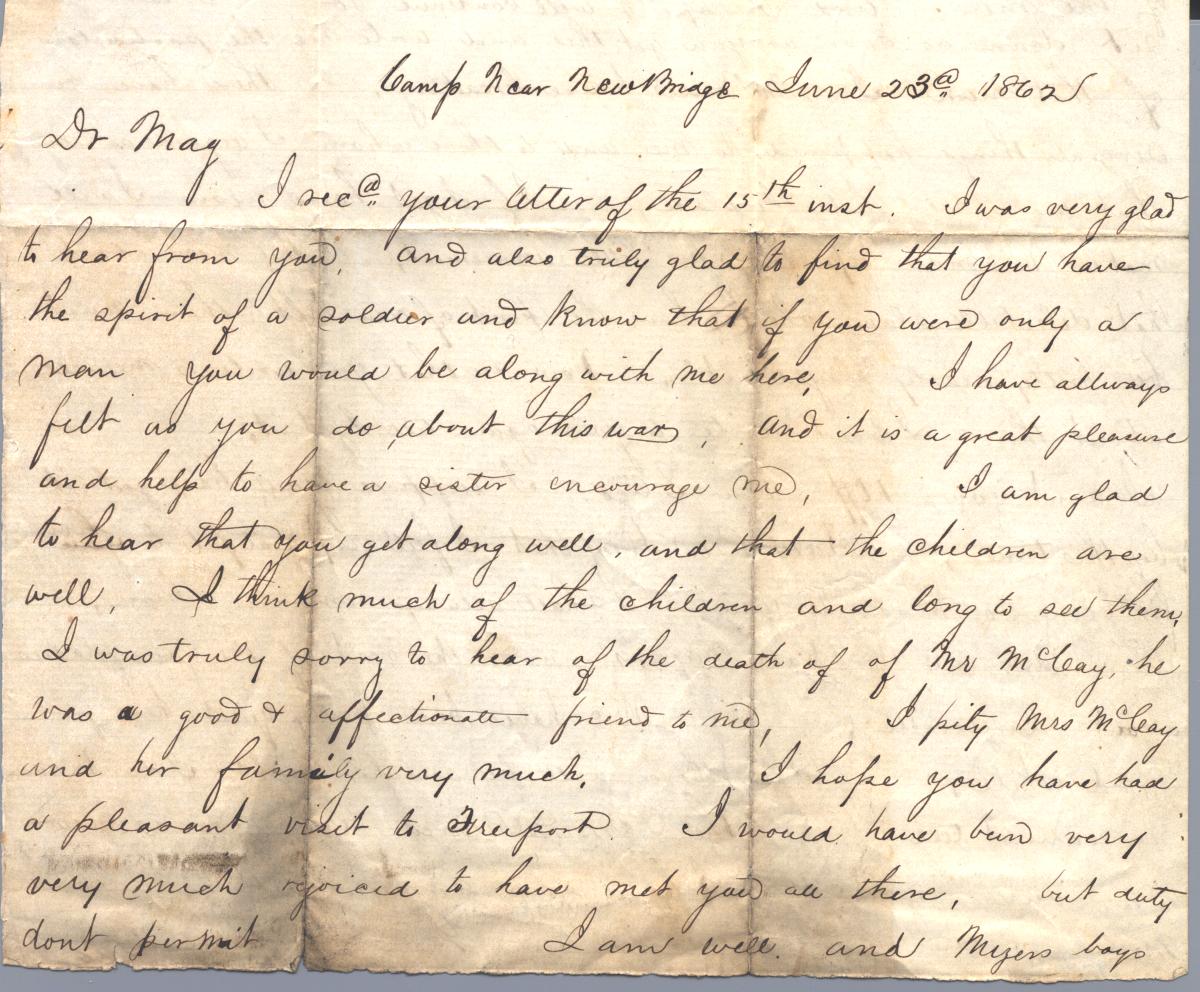 Camp Near New Bridge June 23d 1862
Dr Mag
I recd your letter of the 15th inst. I was very glad
to hear from you, and also truly glad to find that you have
the spirit of a soldier and know that if you were only a
man you would be along with me here, I have allways
felt as you do about this war, and it is a great pleasure
and help to have a sister encourage me, I am glad
to hear that you get along well, and that the children are
well, I think much of the children and long to see them,
I was truly sorry to hear of the death of of Mr McCay, he
was a good & affectionate friend to me, I pity Mrs McCay
and her family very much, I hope you have had
a pleasant visit to Freeport. I would have been very
very much rejoiced to have met you all there, but duty
dont permit I am well. and Myers boys